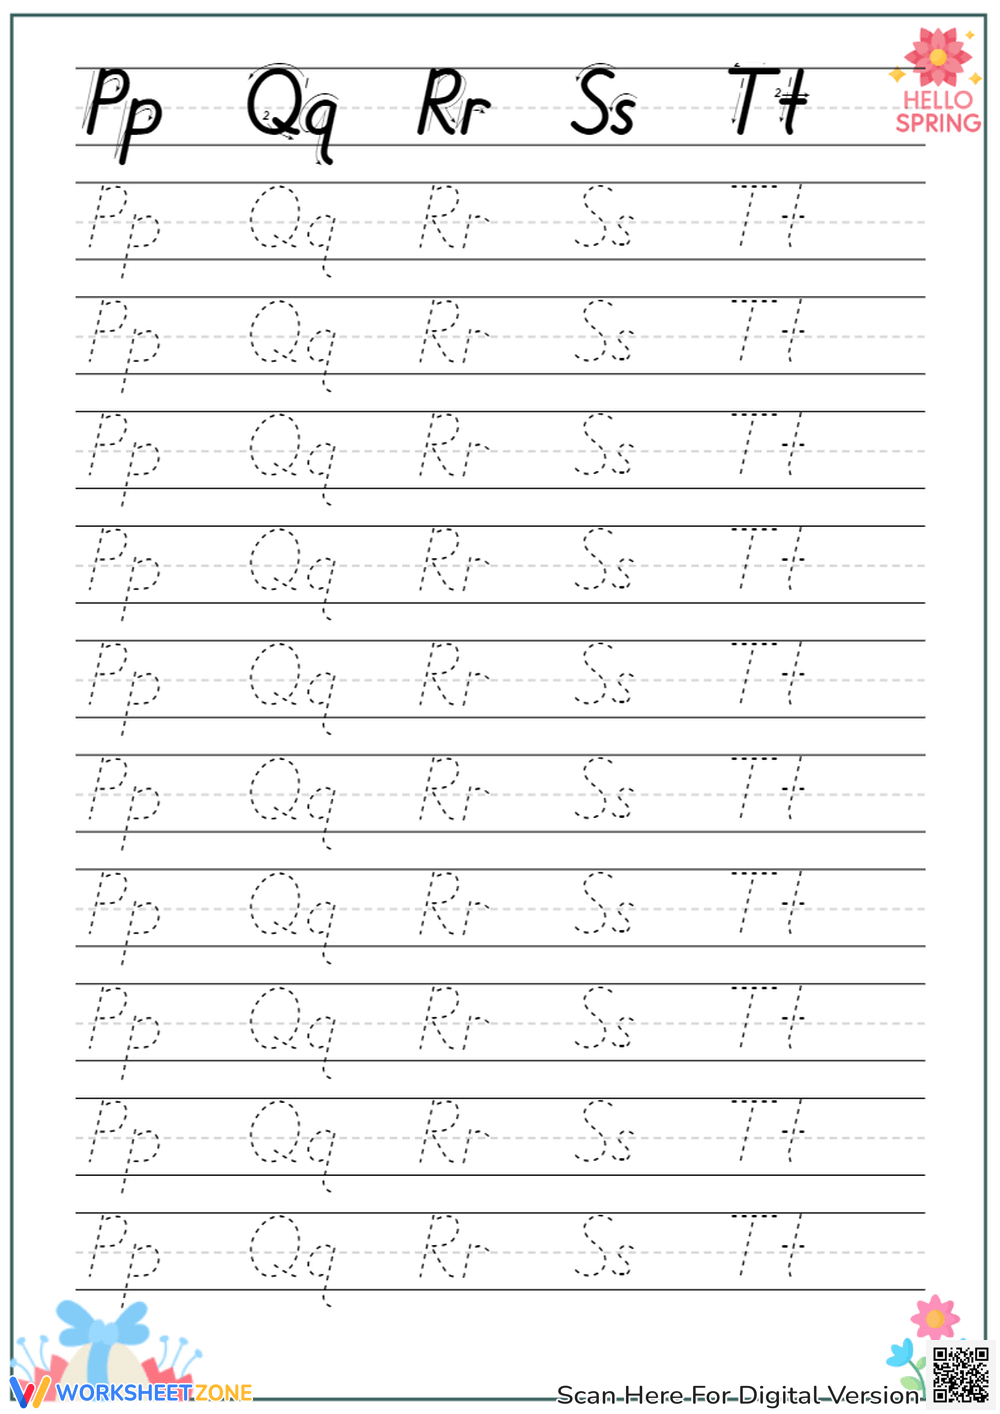 Pp Qq Rr Ss Tt
HELLO
SPRING
Pp Qq Rr Ss Tt
Pp Qq Rr Ss Tt
Pp Qq Rr Ss Tt
Pp Qq Rr Ss Tt
Pp Qq Rr Ss Tt
Pp Qq Rr Ss Tt
Pp Qq Rr Ss Tt
Pp Qq Rr Ss Tt
Pp Qq Rr Ss Tt
Pp Qq Rr Ss Tt
WORKSHEETZONE
Scan Here For Digital Version